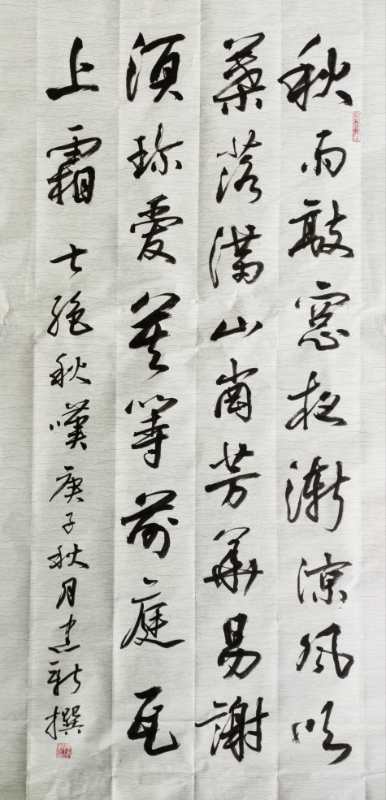 秋雨敲窓夜漸涼風吹
葉落滿山崗芳華易謝
須珍愛莫等前庭瓦
上霜 七絕秋嘆 庚子秋月建新撰